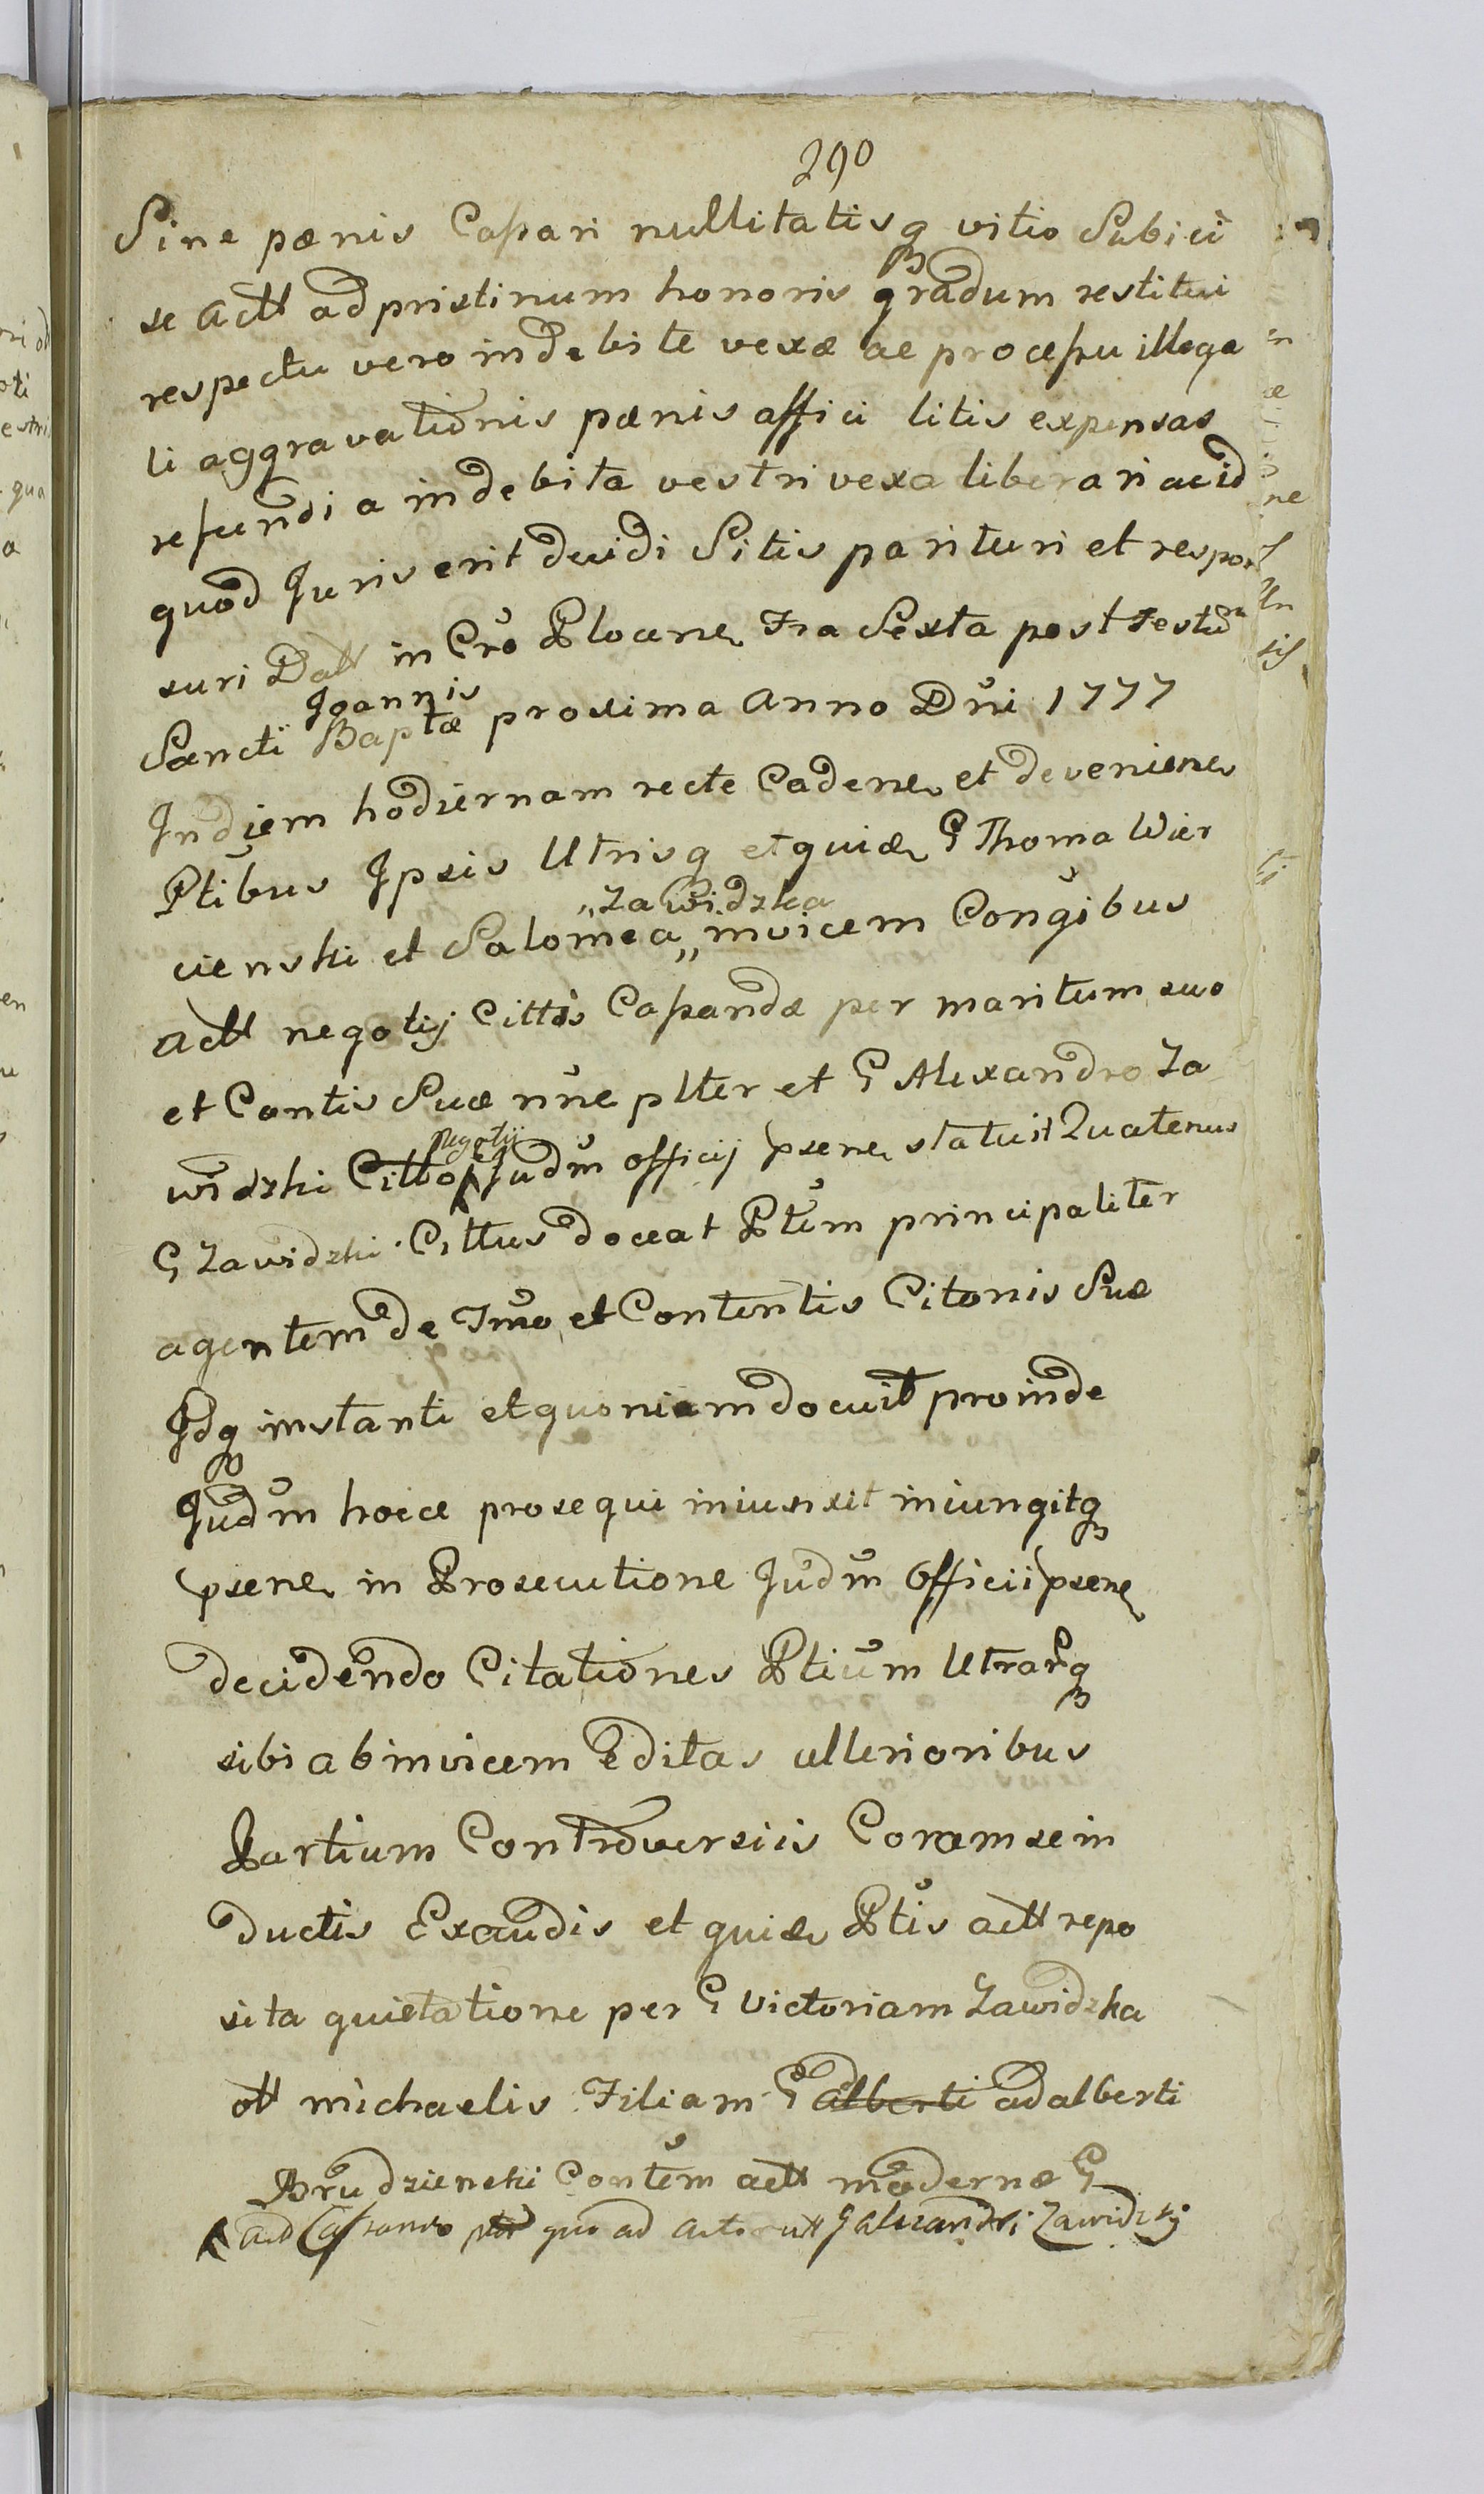 290
Sine pænis Cassari nullitatisq vitio Subici
se Actt ad pristinum honoris gradum restitui
respectu vero indebite vexæ ac processu illega
li aggravationis pænis affici litis expensas
refundi a indebita vestri vexa liberari ac id
quod Juris erit decidi Sitis parituri et respon
suri Datt in Cro Plocene Fra Sexta post Festū
Joannis
Sancti Baptæ proxima Anno Dni 1777
In diem hodiernam recte Cadene et deveniene
Ptibus Ipsis Utrisq et quidē G Thoma Wier
„Zawidzka
cienski et Salomea„ invicem Congibus
Actt negotij Cittis Cassandæ per maritum suo
et Contis Suæ nne pltter et G Alexandro Za
negotij
widzki Citto Judm officij psene statuit Quatenus
G Zawidzki Cittus doceat Ptem principaliter
agentem de Tmo et Contentis Citonis Suæ
Idq instanti et quoniam docuit proinde
Judm hocce prosequi iniunxit iniungitq
psene in Prosecutione Judm Officii psene
decidendo Citationes Ptium Utrarq
sibi ab invicem editas ulterioribus
Partium Controversiis Coram se in
ductis Exaudis et quidē Ptis actt repo
sita quietatione per G Victoriam Zawidzka
ott michaelis Filiam G alberti adalberti
Brudzienski Contem actt modernæ G
quo ad Actorutt G alexandri Zawidzkij